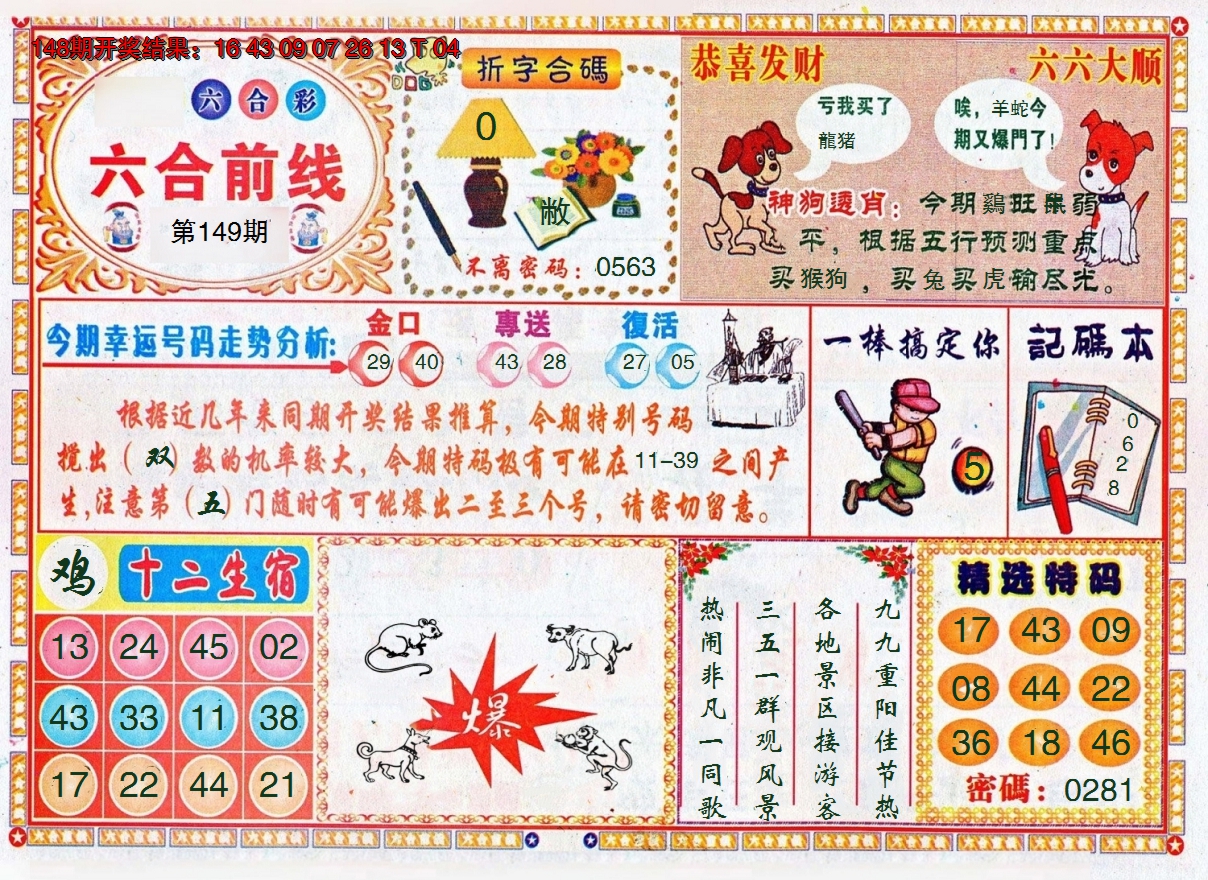 148期开奖结果：16 43 09 07 26 13 T 04
六合彩
六合前线
第149期
DOG
折字合碼
0
敝
不离密码：0563
恭喜发财
六六大顺
亏我买了
龍猪
唉，羊蛇今
期又爆門了!
神狗透肖：今期鷄旺鼠弱
平，根据五行预测重点
买猴狗，买兔买虎输尽光。
今期幸运号码走势分析:
金口
29 40
專送
43 28
復活
27 05
根据近几年来同期开奖结果推算，今期特别号码
搅出（双）数的机率较大，今期特码极有可能在11-39之间产
生,注意第（五）门随时有可能爆出二至三个号，请密切留意。
一棒搞定你
5
記碼本
0
6
2
8
鸡
十二生宿
13 24 45 02
43 33 11 38
17 22 44 21
爆
九九重阳佳节热
各地景区接游客
三五一群观风景
热闹非凡一同歌
精选特码
17 43 09
08 44 22
36 18 46
密碼：0281